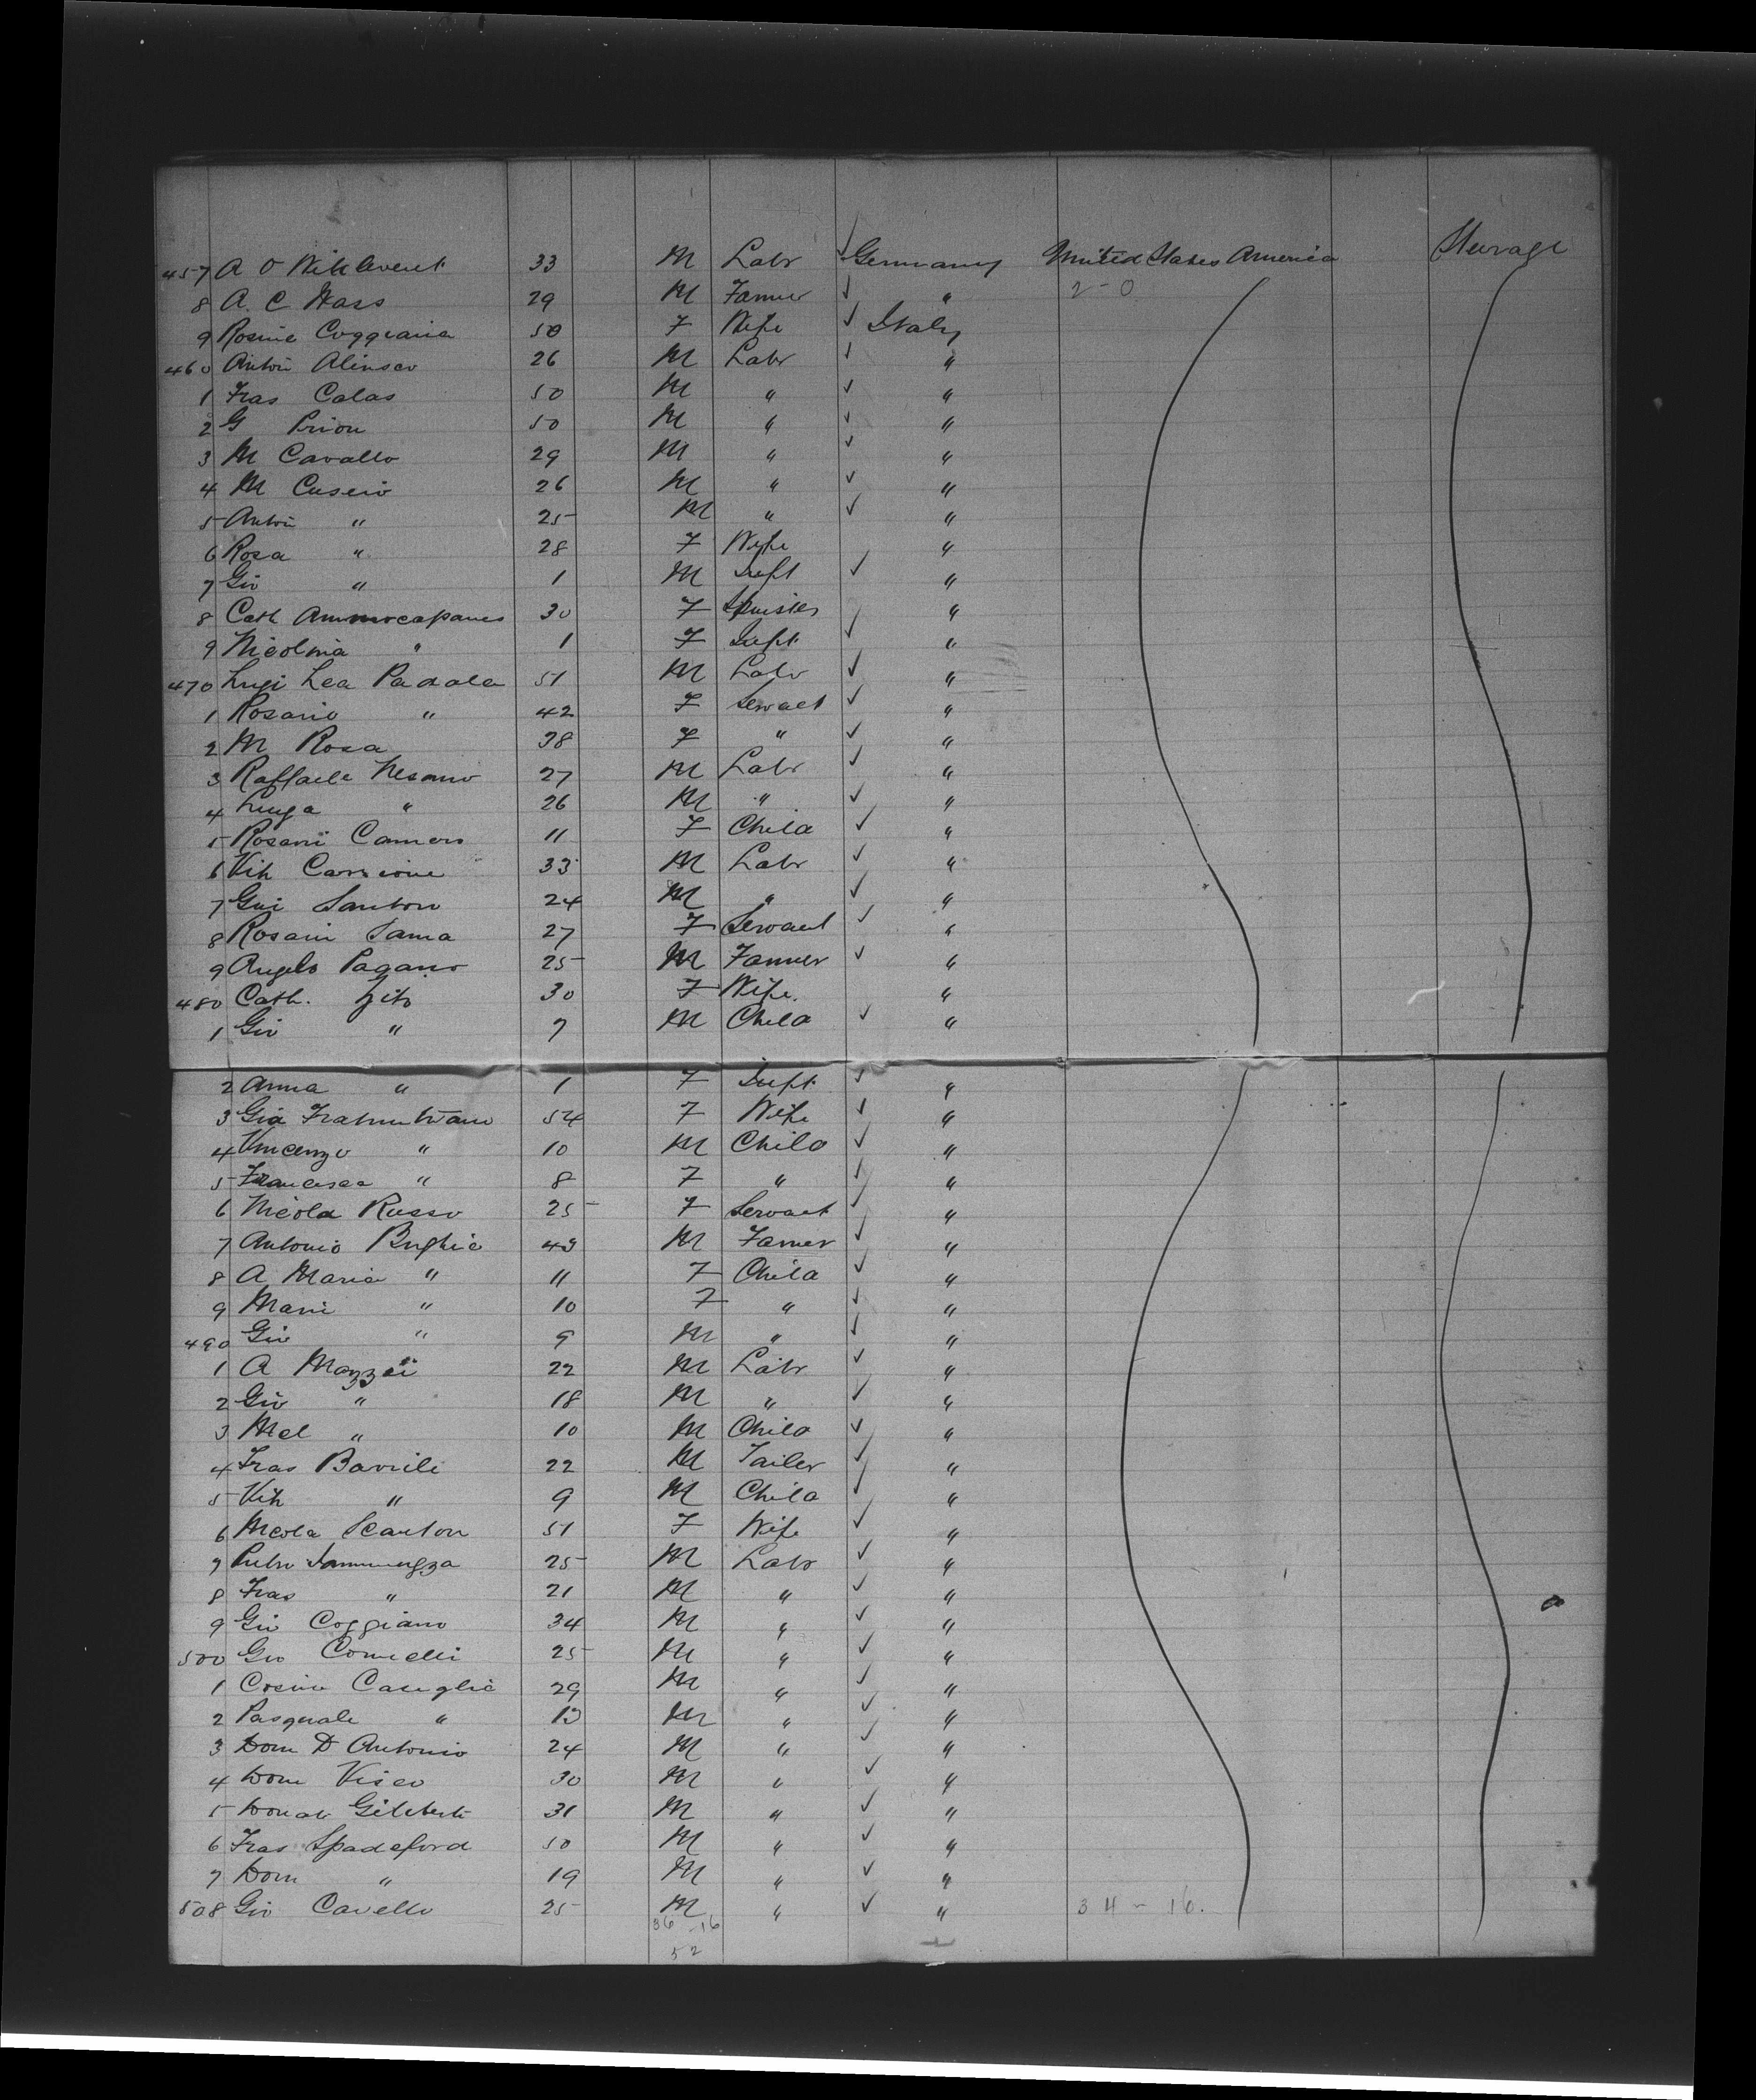 457 A O Wikleveret 33 M Labr ✓ Germany United States America Steerage
8 A. C Wass 29 M Farmer ✓ " 2-0
9 Rosine Coggiania 50 F Wife ✓ Italy
460 Anton Alinseo 26 M Labr ✓ "
1 Fras Calas 50 M " ✓ "
2 G Prion 50 M " ✓ "
3 M Cavallo 29 M " ✓ "
4 M Cuseio 26 M " ✓ "
5 Anton " 25 M " ✓ "
6 Rosa " 28 F Wife "
7 Gio " 1 M Inft ✓ "
8 Cath 30 F Spinster ✓ "
9 Nicolina " 1 F Inft ✓ "
470 Luigi Lea Padala 51 M Labr ✓ "
1 Rosario " 42 F Servact ✓ "
2 M Rosa 38 F " ✓ "
3 Raffaele Nesano 27 M Labr ✓ "
4 Luiga " 26 M " ✓ "
5 Rosani Camero 11 F Child ✓ "
6 Vih Carscione 33 M Labr ✓ "
7 Gui Santoro 24 M " ✓ "
8 Rosani Sama 27 F Servant ✓ "
9 Angelo Pagano 25 M Farmer ✓ "
480 Cath. Zito 30 F Wife. "
1 Gio " 7 M Child ✓ "
2 Anna " 1 F Inft ✓ "
3 Gia 54 F Wife ✓ "
4 Vincenzo " 10 M Child ✓ "
5 Francesca " 8 F " ✓ "
6 Nicola Russo 25 F Servact ✓ "
7 Antonio Bughie 43 M Farmer ✓ "
8 A Maria " 11 F Child ✓ "
9 Mari " 10 F " ✓ "
490 Gio " 9 M " ✓ "
1 A Mazzei 22 M Labr ✓ "
2 Gio " 18 M " ✓ "
3 Mel " 10 M Child ✓ "
4 Fras Barrile 22 M Tailer ✓ "
5 Vih " 9 M Child ✓ "
6 Nicola Scanton 51 F Wife ✓ "
7 Pietro 25 M Labr ✓ "
8 Fras " 21 M " ✓ "
9 Gio Coggiano 34 M " ✓ "
500 Gio Comielli 25 M " ✓ "
1 Cosimo Caruglie 29 M " ✓ "
2 Pasquale " 13 M " ✓ "
3 Dom D Antonio 24 M " ✓ "
4 Dom Viseo 30 M " ✓ "
5 Donato Gileberti 31 M " ✓ "
6 Fras Spadeford 50 M " ✓ "
7 Dom " 19 M " ✓ "
508 Gio Cavello 25 M " ✓ " 34 - 16.
36 - 16
52